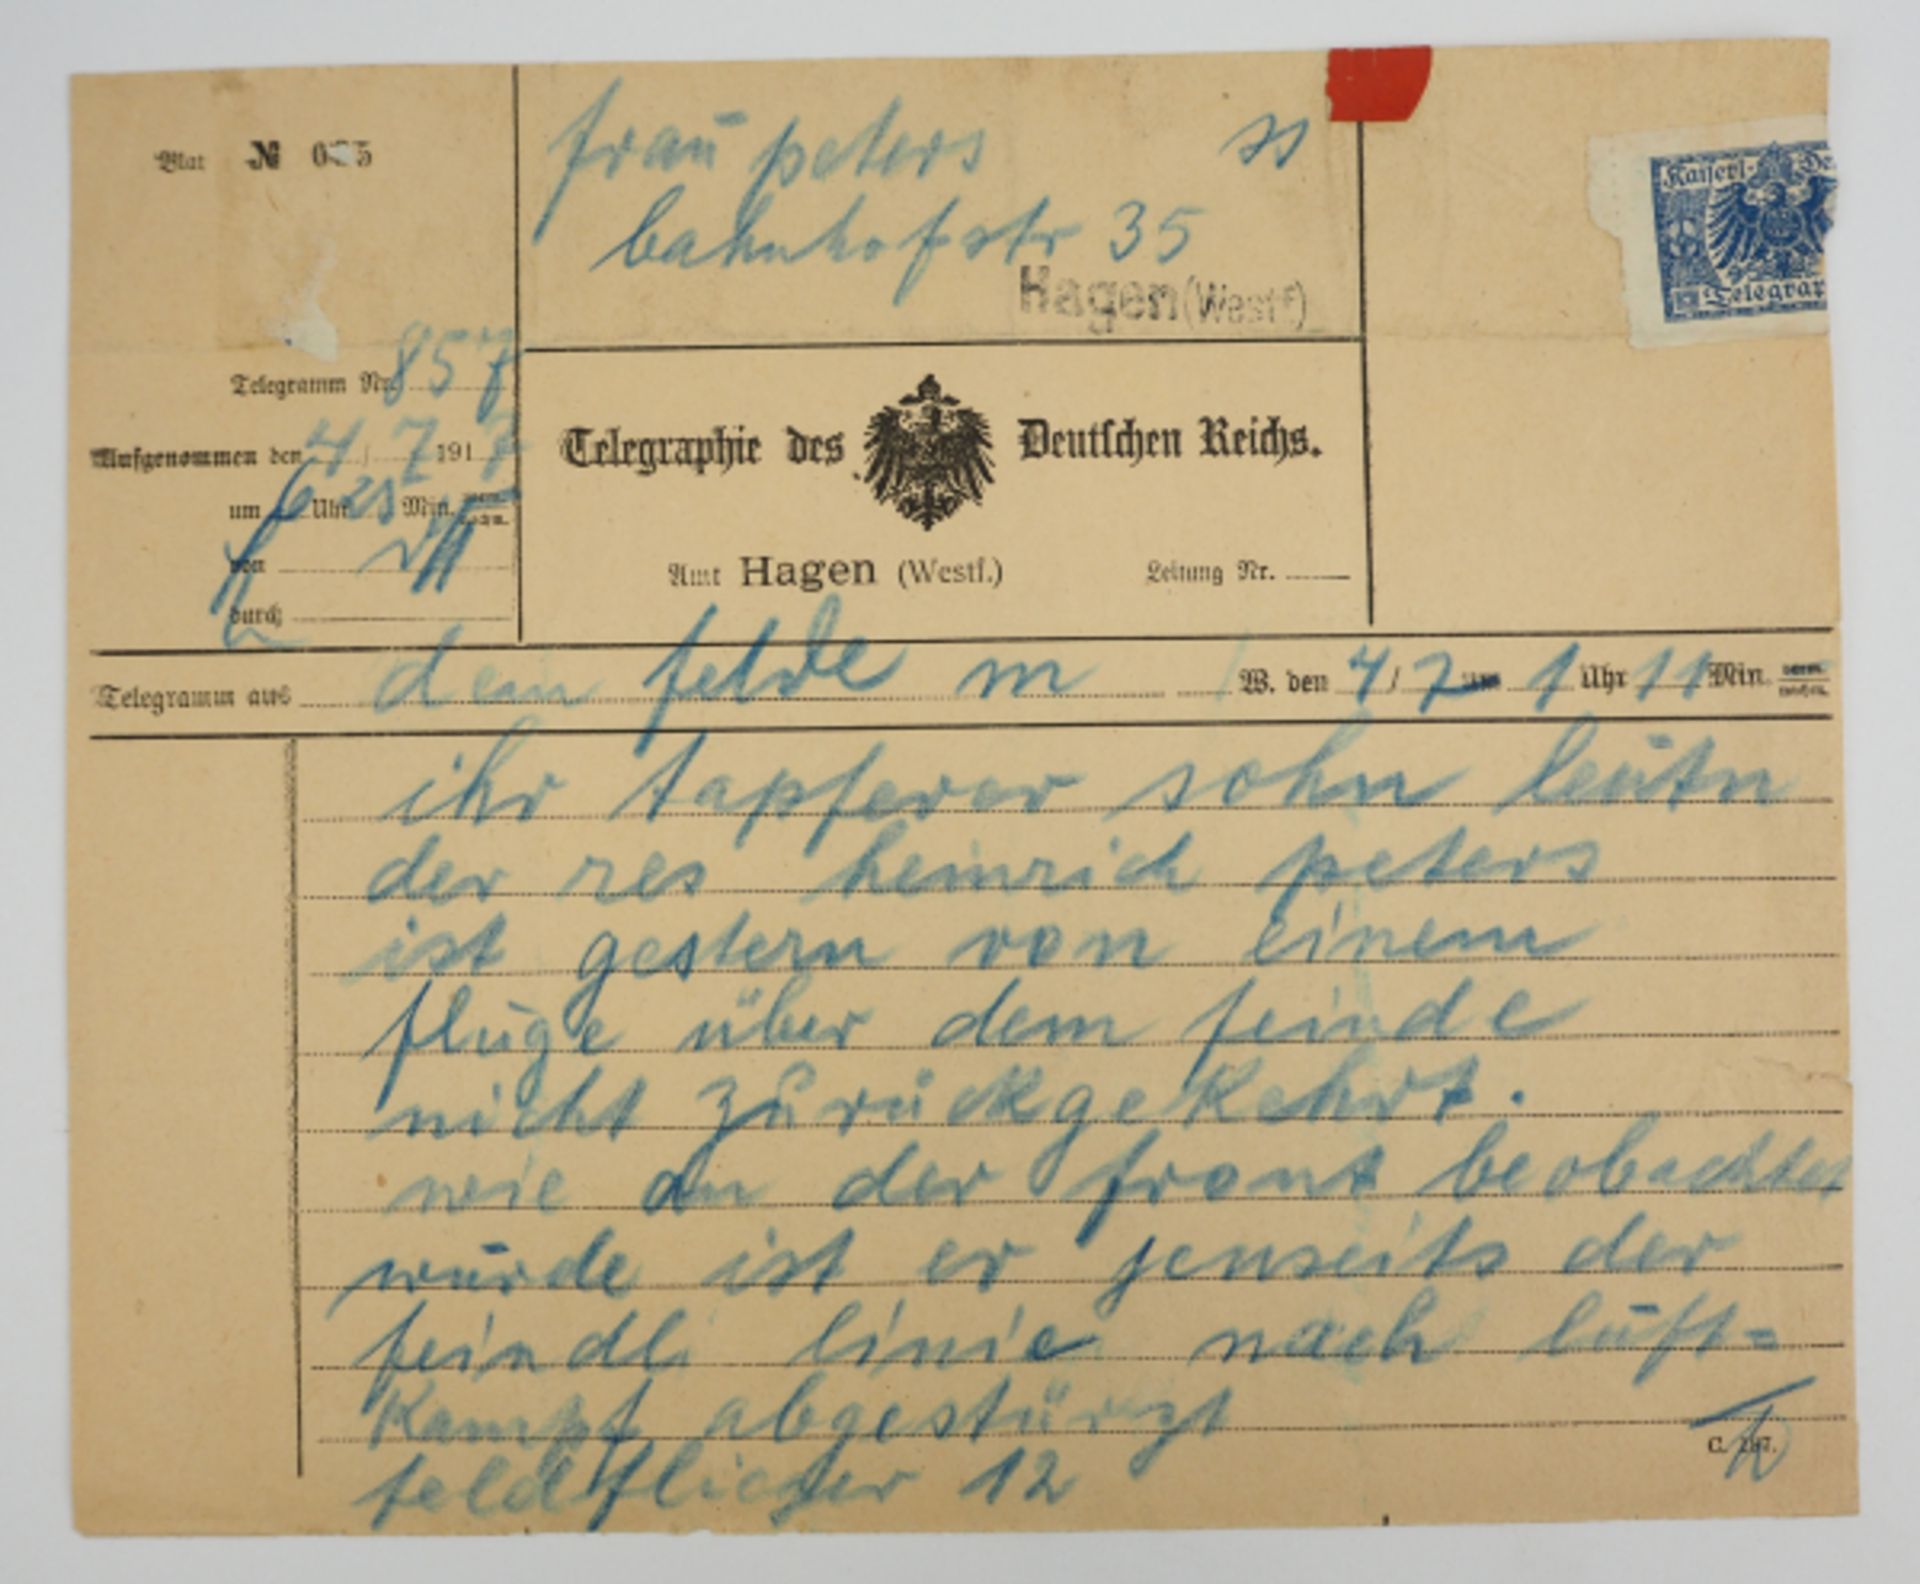 frau peters ss
bahnhofstr 35
Hagen (Westf)
Blat № 0 5
Kaiserl. De
Telegra
Telegramm Nr. 857
Aufgenommen den 4 / 7 1917
um 6 Uhr 25 Min.
von
durch
Telegraphie des Deutschen Reichs.
Amt Hagen (Westf.) Leitung Nr.
Telegramm aus dem felde m W. den 4 / 7 um 1 Uhr 11 Min.
ihr tapferer sohn leutn
der res heinrich peters
ist gestern von einem
fluge über dem feinde
nicht zurückgekehrt.
wie an der front beobachtet
wurde ist er jenseits der
feindl. linie nach luft=
kampf abgestürzt
feldflieger 12
C. 187.